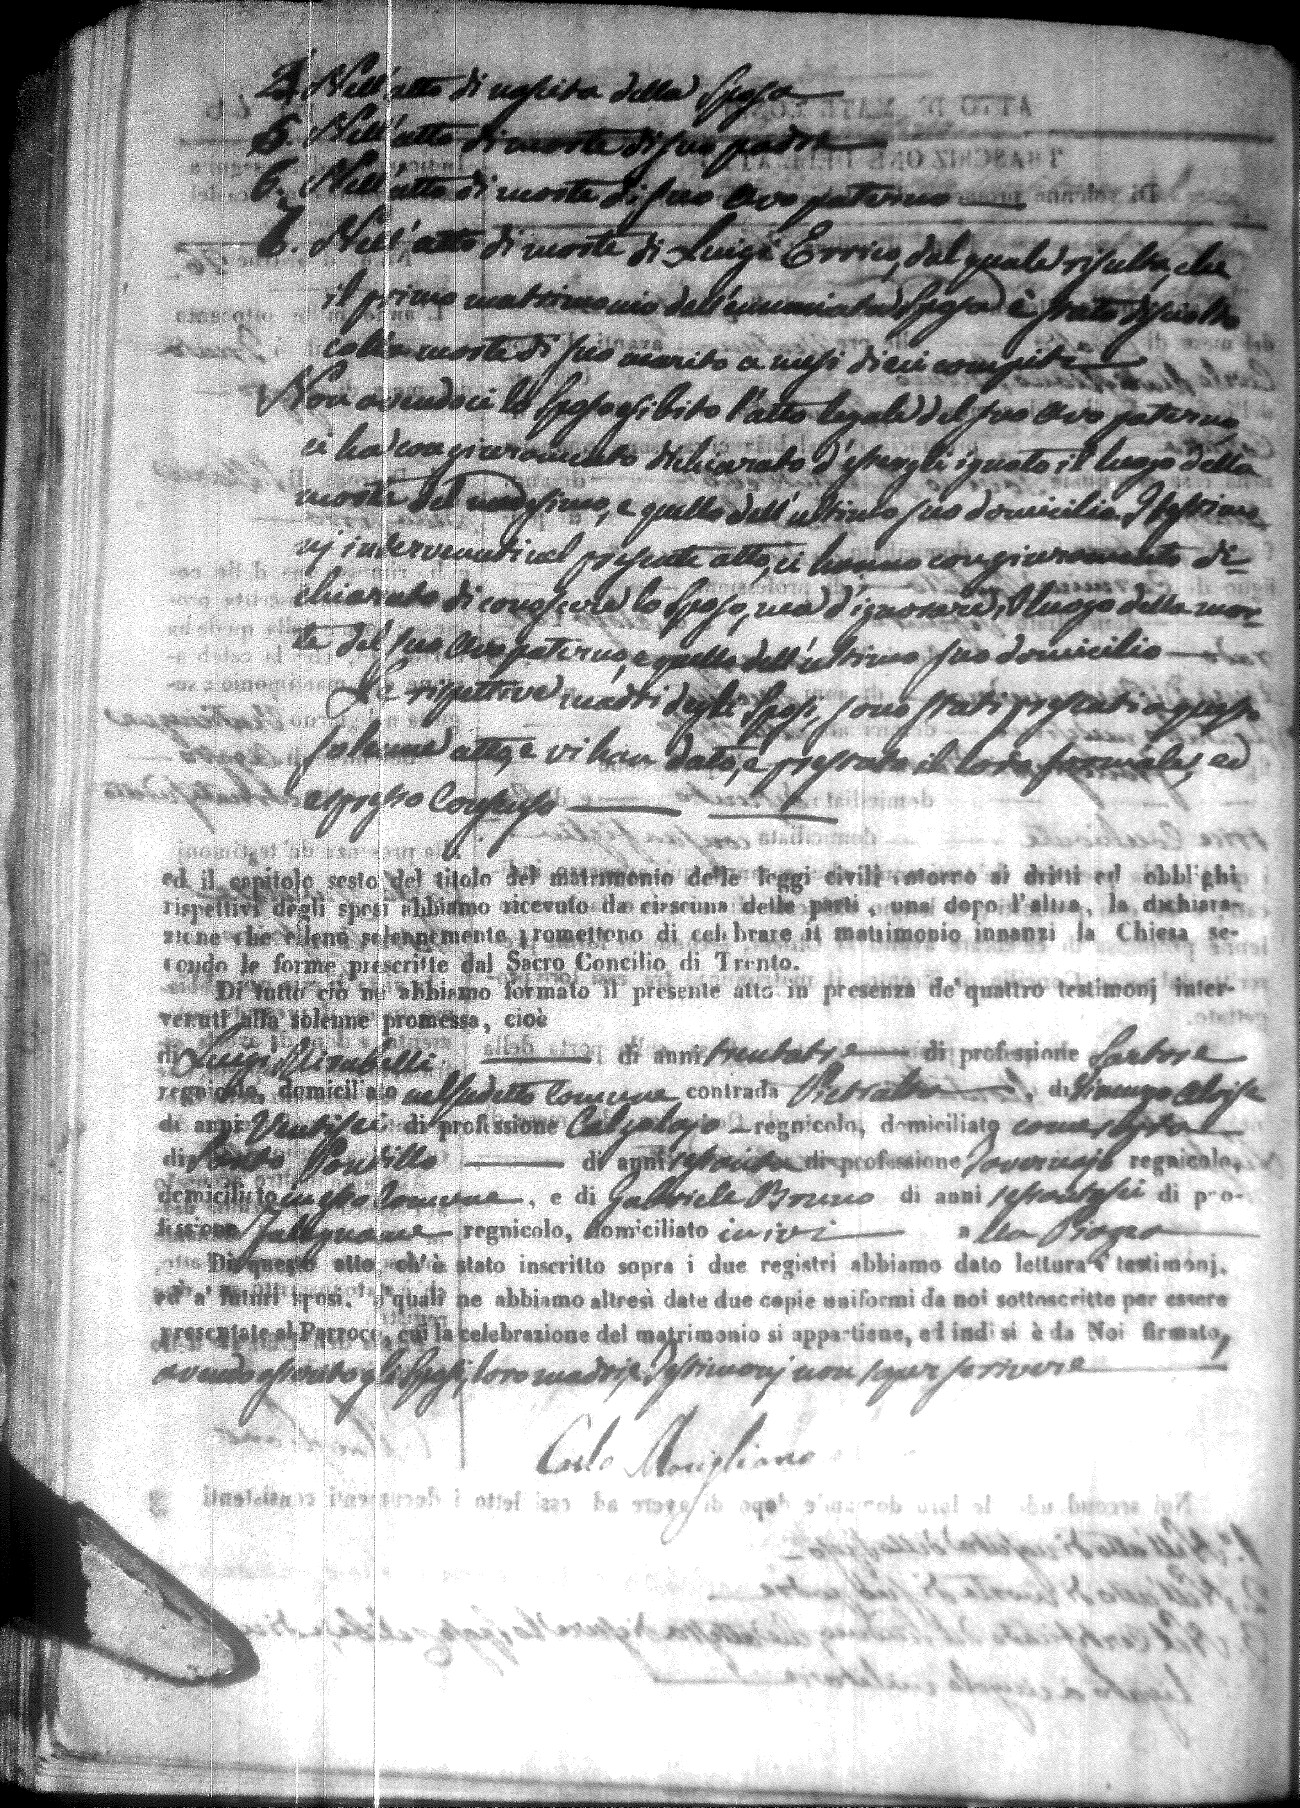 4. Nell'atto di nascita della Sposa
5. Nell'atto di morte di suo padre
6. Nell'atto di morte di suo Avo paterno
7. Nell'atto di morte di Luigi Errico, dal quale risulta, che
il primo matrimonio dell'enunciata Sposa è stato disciolto
colla morte di suo marito a mesi dieci compiti
Non avendoci lo Sposo esibito l'atto legale del suo Avo paterno
ci ha con giuramento dichiarato d'essergli ignoto il luogo della
morte del medesimo, e quello dell'ultimo suo domicilio. I testimo
nj intervenuti nel presente atto, ci hanno con giuramento di=
chiarato di conoscere lo Sposo, ma d'ignorare il luogo della mor=
te del suo Avo paterno, e quello dell'ultimo suo domicilio
Le rispettive madri degli Sposi, sono stati presenti a questo
solenne atto, e vi han dato, e prestato il loro formale, ed
espresso Consenso
ed il capitolo sesto del titolo del matrimonio delle leggi civili intorno ai dritti ed obblighi
rispettivi degli sposi abbiamo ricevuto da ciascuna delle parti, una dopo l'altra, la dichiara-
zione che eileno solennemente promettono di celebrare il matrimonio innanzi la Chiesa se-
condo le forme prescritte dal Sacro Concilio di Trento.
Di tutto ciò ne abbiamo formato il presente atto in presenza de' quattro testimonj inter-
venuti alla solenne promessa, cioè
di Luigi Mirabelli di anni trentatre di professione Sartore
regnicolo, domiciliato nel sudetto Comune contrada , di
di anni Ventisei di professione Calzolajo regnicolo, domiciliato come sopra
di di anni sessanta di professione Tavernajo regnicolo,
domiciliato in questo Comune, e di Gabriele Bruno di anni di pro-
fessione Falegname regnicolo, domiciliato in ivi alla Piazza
Di questo atto, ch'è stato inscritto sopra i due registri abbiamo dato lettura a' testimonj,
ed a' futuri sposi, a' quali ne abbiamo altresì date due copie uniformi da noi sottoscritte per essere
presentate al Parroco, cui la celebrazione del matrimonio si appartiene, ed indi si è da Noi firmato,
avendo asserito gli Sposi, loro madri, e Testimonj non saper scrivere
Carlo Marigliano